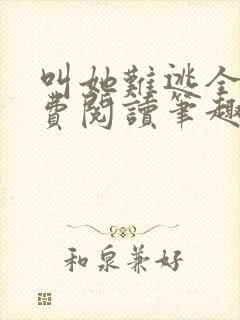 叫她難逃全
費閱讀筆趣
和泉兼好